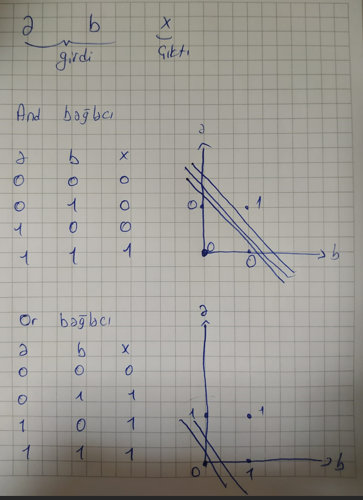 a b x
girdi çıktı
And bağlacı
a b x
0 0 0
0 1 0
1 0 0
1 1 1
a
0 1
0 0 b
Or bağlacı
a b x
0 0 0
0 1 1
1 0 1
1 1 1
a
1 1
0 1 b